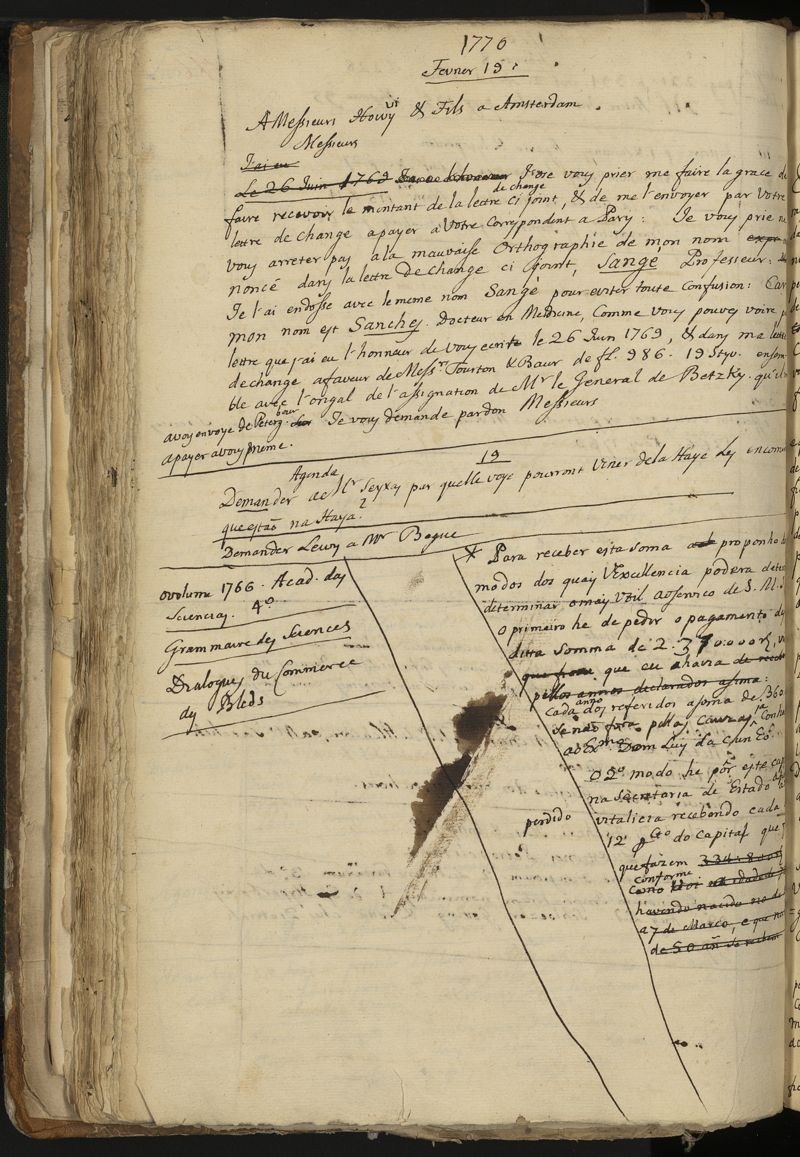 1770
Fevrier 19.
A Messieurs Howy & Fils a Amsterdam
Messieurs
J'ai eu
Le 26 Juin 1769 J'ose vous prier me faire la grace de
faire recevoir le montant de la lettre de change ci joint, & de me l'envoyer par Votre
lettre de change a payer a Votre Correspondent a Pary: Je vous prie ne
vous arreter pas a la mauvaise Orthographie de mon nom
noncé dans la lettre de change ci joint, Sange Professeur:
Je l'ai endossé avec le meme nom Sange pour eviter toute confusion: Car
mon nom est Sanches. Docteur en Medicine, Comme vous pouves voire
lettre que j'ai eu l'honneur de vous ecrire le 26 Juin 1769, & dans ma lettre
de change a faveur de Mess.rs Tourton & Baur de fl. 986. 19 Styv. ensem
ble avec l'origal de l'assignation de Mr le General de Betzky. qu'il
avoy envoyé de Peterzbour Je vous demande pardon Messieurs
a payer a vous meme.
19
Agenda
Demander ac Mr Seyxas par quelle voye pourront viner de la Haye les encom
que estaõ na Haya?
Demander Lewy a Mr Begue
o volume 1766. Acad. das
Sciencias. 4º
Grammaire des Sciences
Dialogues du Commerce
des Bleds
* Para receber esta soma proponho
modos dos quais VExcellencia poderá deter
determinar o mais Util ao servico de S. M.
O primeiro he de pedir o pagamento da
ditta somma de 2:370:000 rs,
que eu a havia de receb
pellos annos declarados asima:
cada anno dos referidos a soma de 360
pellas cauzas
ao Exmo Dom Luis da Cun
O 2º modo he por este
na Secretaria de Estado
perdido
vitalicia recebendo cada
12 p Cto do capital que
que fazem 334:800
conforme
como
havendo nacido no
a 7 de Marco, e que
de 50 añ